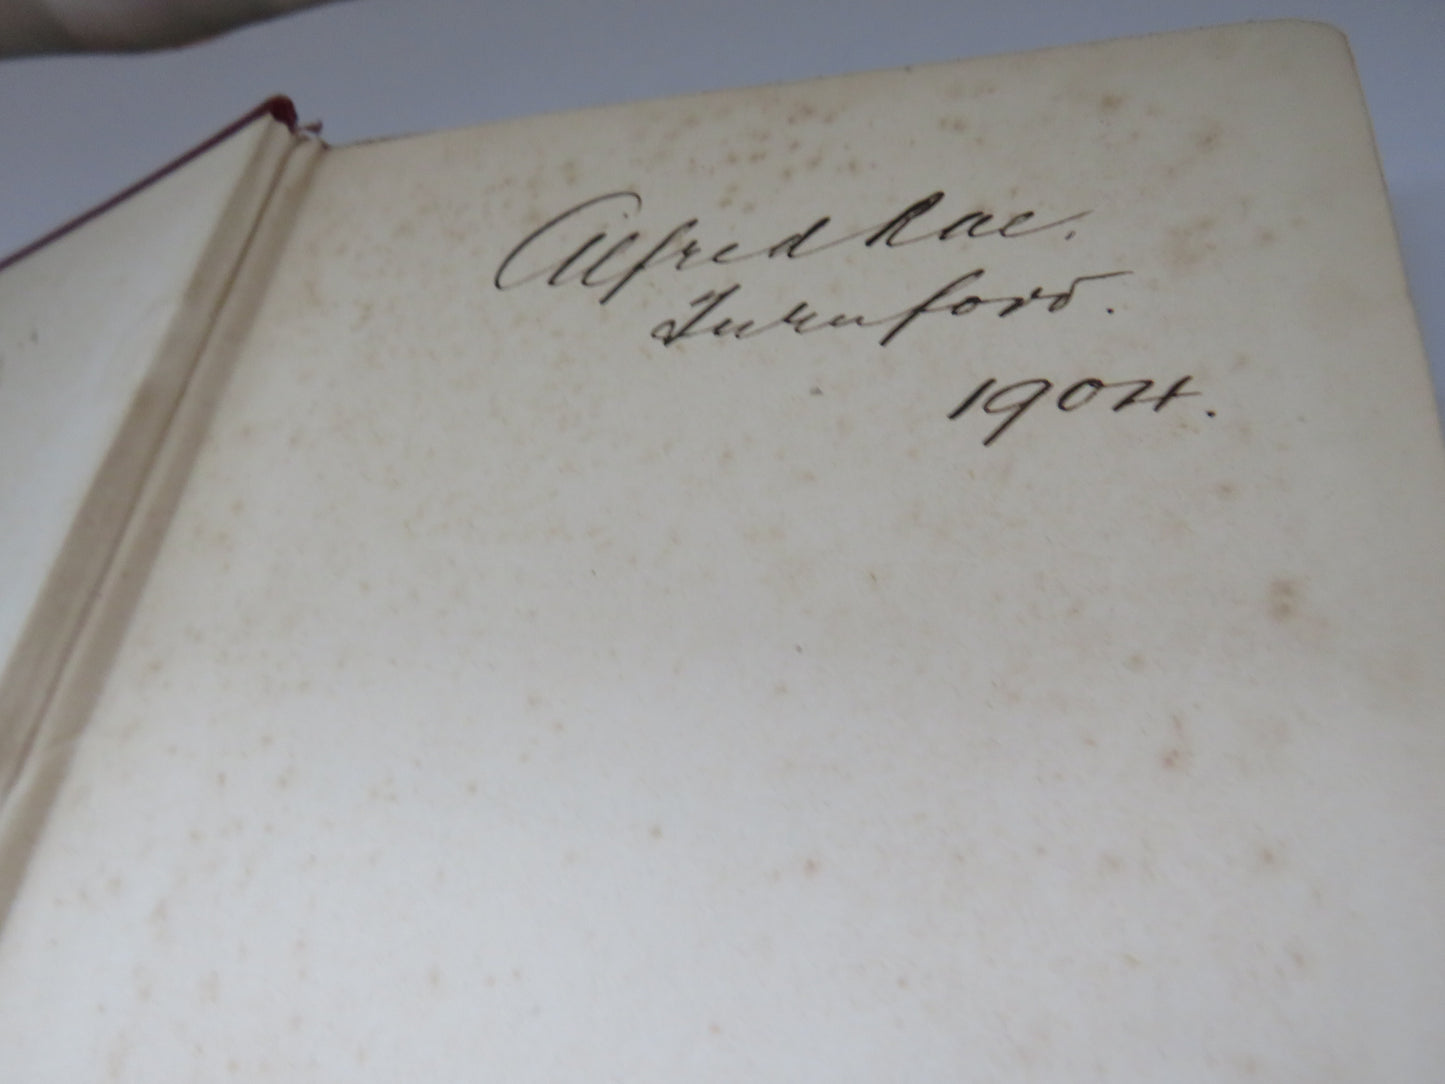 Alfred Rae.
Turnford.
1904.